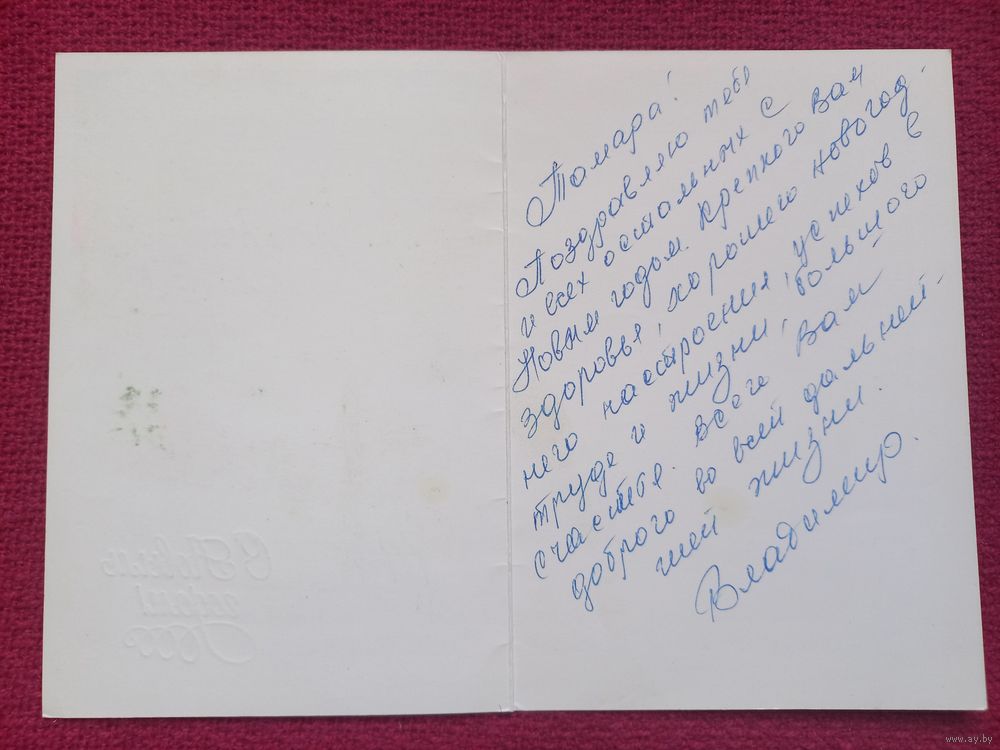 Тамара!
Поздравляю тебя
и всех остальных с
Новым годом. Крепкого Вам
здоровья, хорошего новогод-
него настроения, успехов в
труде и жизни, большого
счастья. Всего Вам
доброго во всей дальней-
шей жизни.
Владимир.
С Новым
годом!
www.ay.by